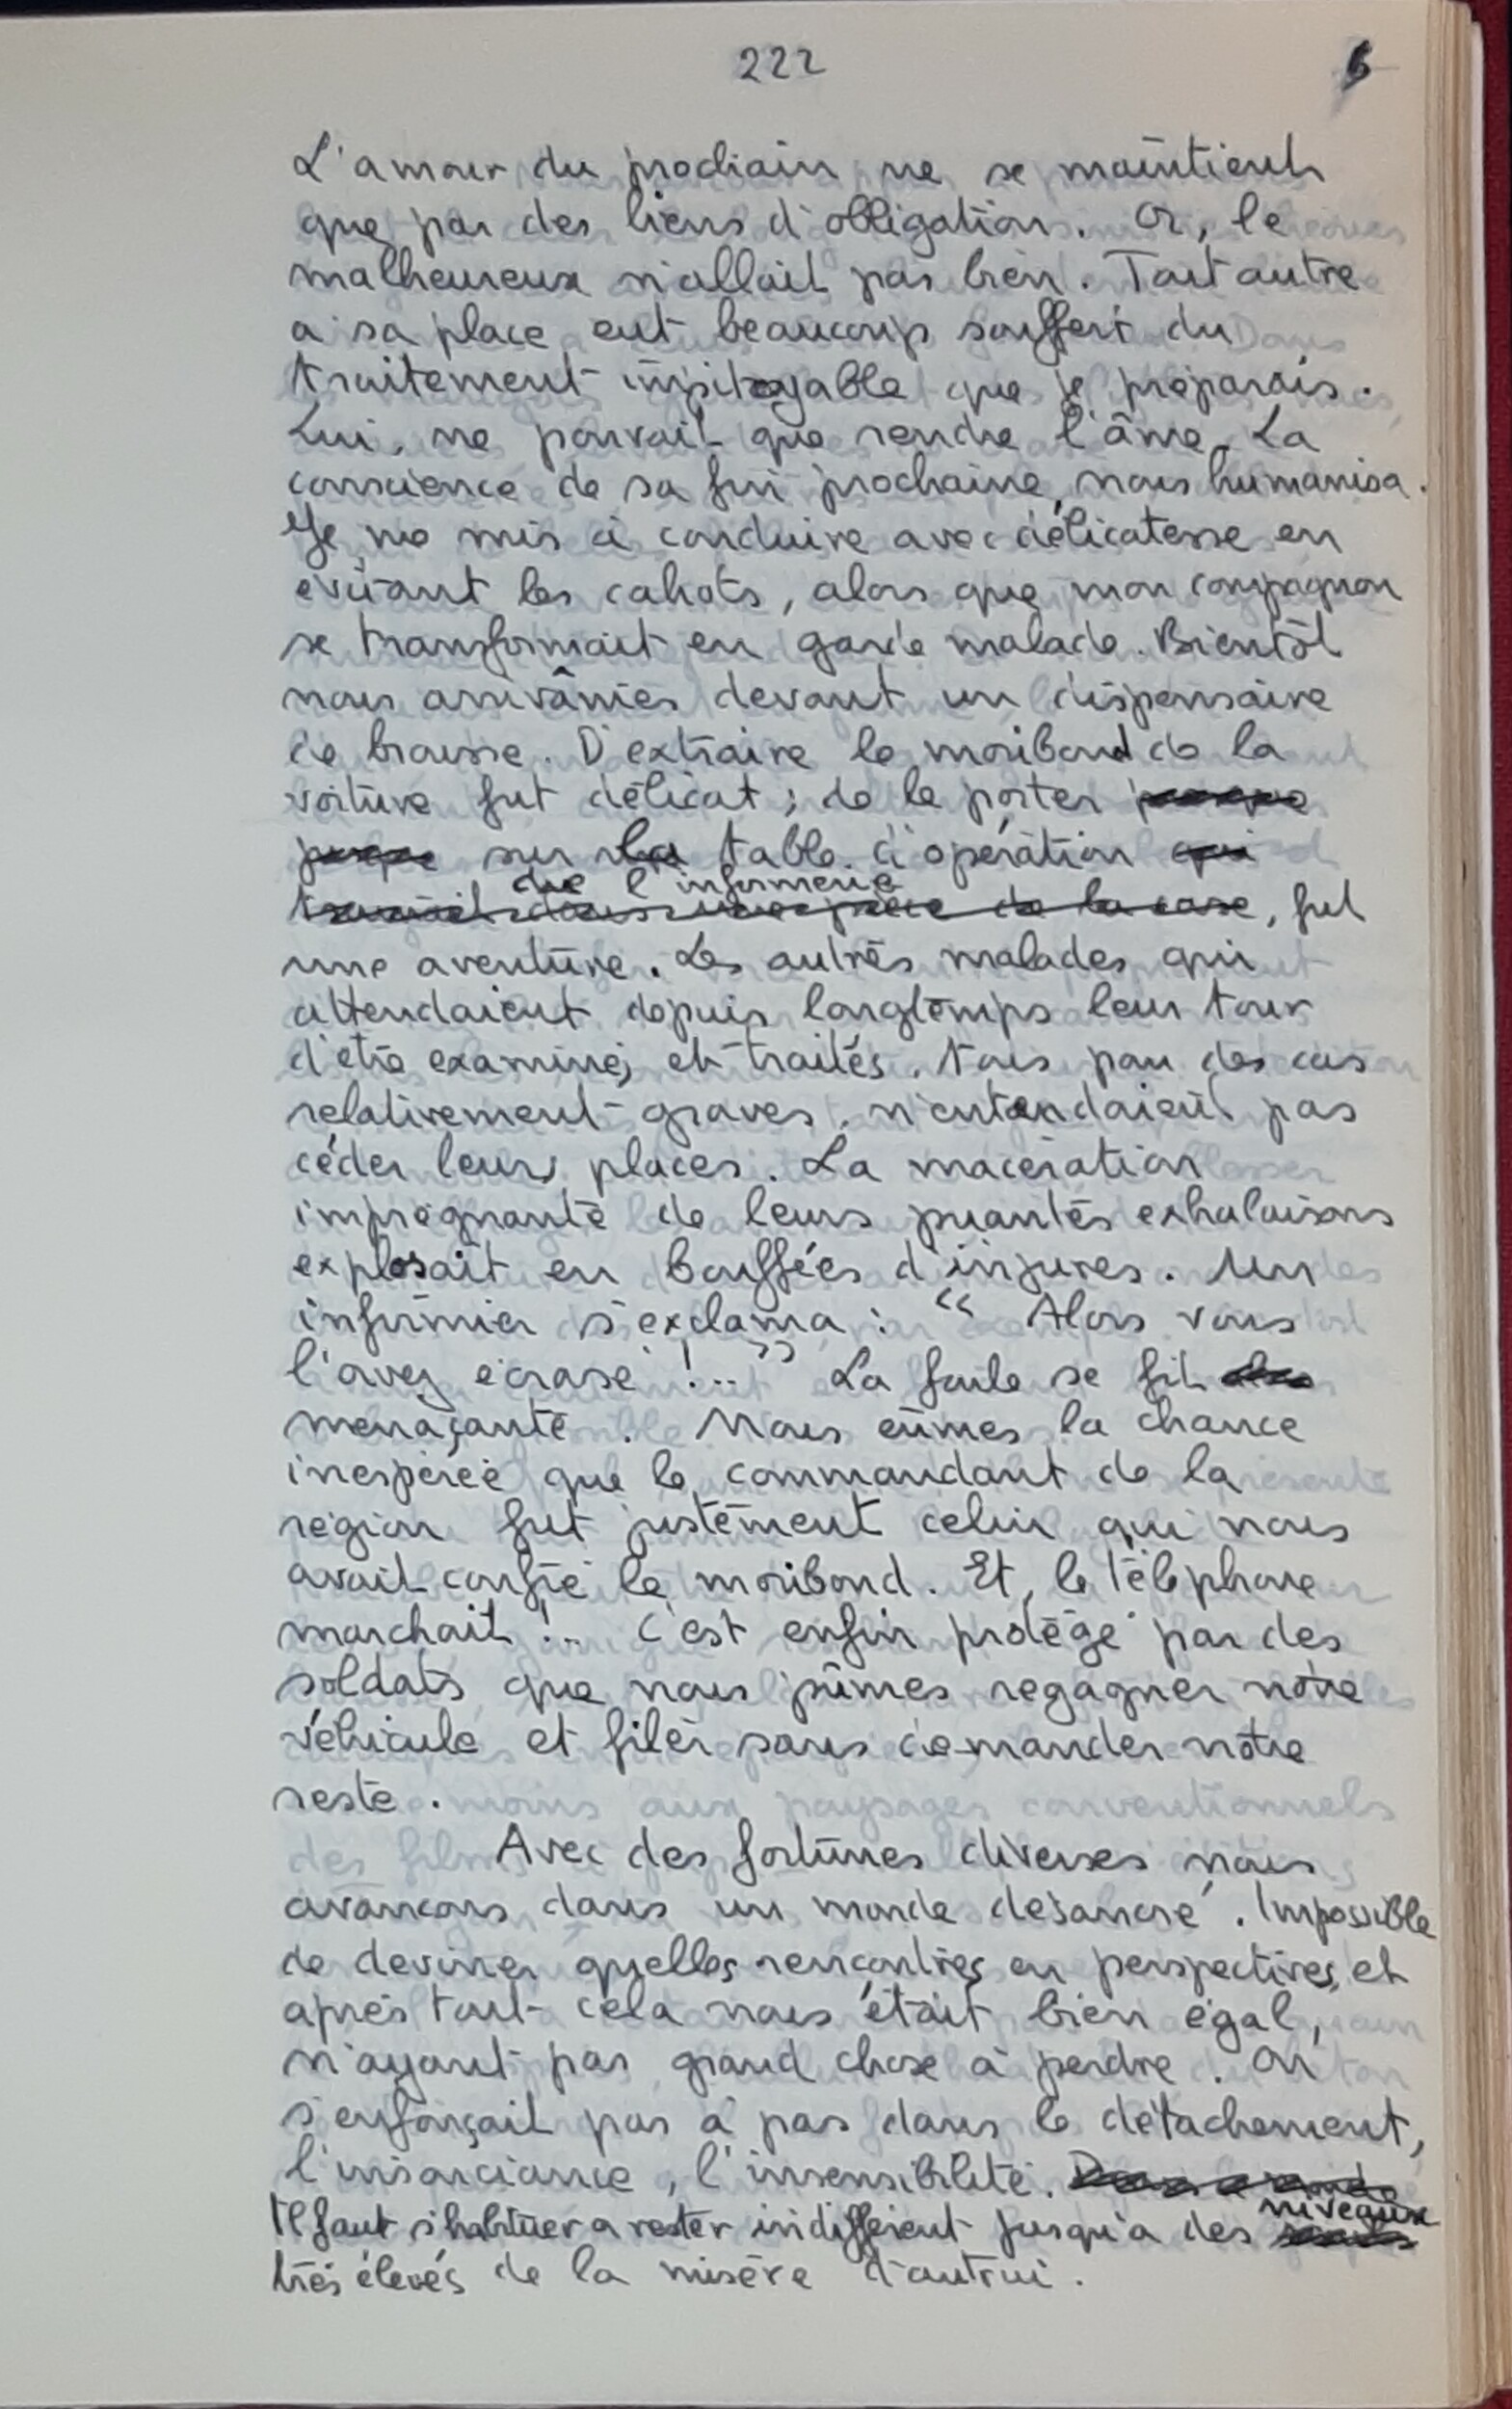 222
6
L'amour du prochain ne se maintient
que par des liens d'obligation. Or, le
malheureux n'allait pas bien. Tout autre
a sa place eut beaucoup souffert du
traitement impitoyable que je préparais.
Lui, ne pouvait que rendre l'âme. La
conscience de sa fin prochaine, nous humanisa.
Je me mis à conduire avec délicatesse en
évitant les cahots, alors que mon compagnon
se transformait en garde malade. Bientôt
nous arrivâmes devant un dispensaire
de brousse. D'extraire le moribond de la
voiture fut délicat ; de le porter
sur la table d'opération
de l'infirmerie
, fut
une aventure. Les autres malades qui
attendaient depuis longtemps leur tour
d'être examinés et traités. Tous pour des cas
relativement graves, n'entendaient pas
céder leurs places. La macération
imprégnante de leurs puantes exhalaisons
explosait en bouffées d'injures. Un
infirmier s'exclama : “ Alors vous
l'avez écrasé !.. ” La foule se fit
menaçante. Nous eûmes la chance
inespérée que le commandant de la
région fut justement celui qui nous
avait confié le moribond. Et, le téléphone
marchait !.. C'est enfin protégé par des
soldats que nous pûmes regagner notre
véhicule et filer sans demander notre
reste.
Avec des fortunes diverses nous
avancons dans un monde désancré. Impossible
de deviner quelles rencontres en perspectives, et
après tout cela nous était bien égal,
n'ayant pas grand chose à perdre. On
s'enfonçait pas à pas dans le détachement,
l'insouciance, l'insensibilité.
niveaux
Il faut s'habituer a rester indifférent jusqu'a des
très élevés de la misère d'autrui.